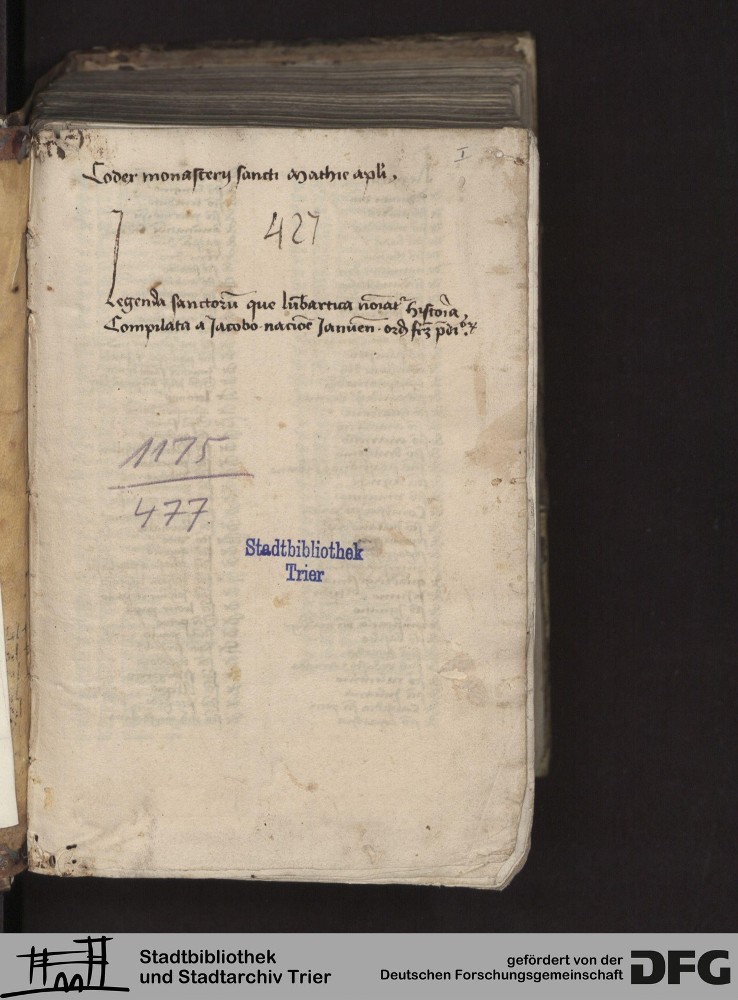 I
Codex monasterij sancti Mathie apli,
427
Legenda sanctorū que lūbartica noīat² historīa,
Compilata a Jacobo nacioē Januen̄ ordīs
1175
477
Stadtbibliothek
Trier
Stadtbibliothek
und Stadtarchiv Trier
gefördert von der
Deutschen Forschungsgemeinschaft
DFG